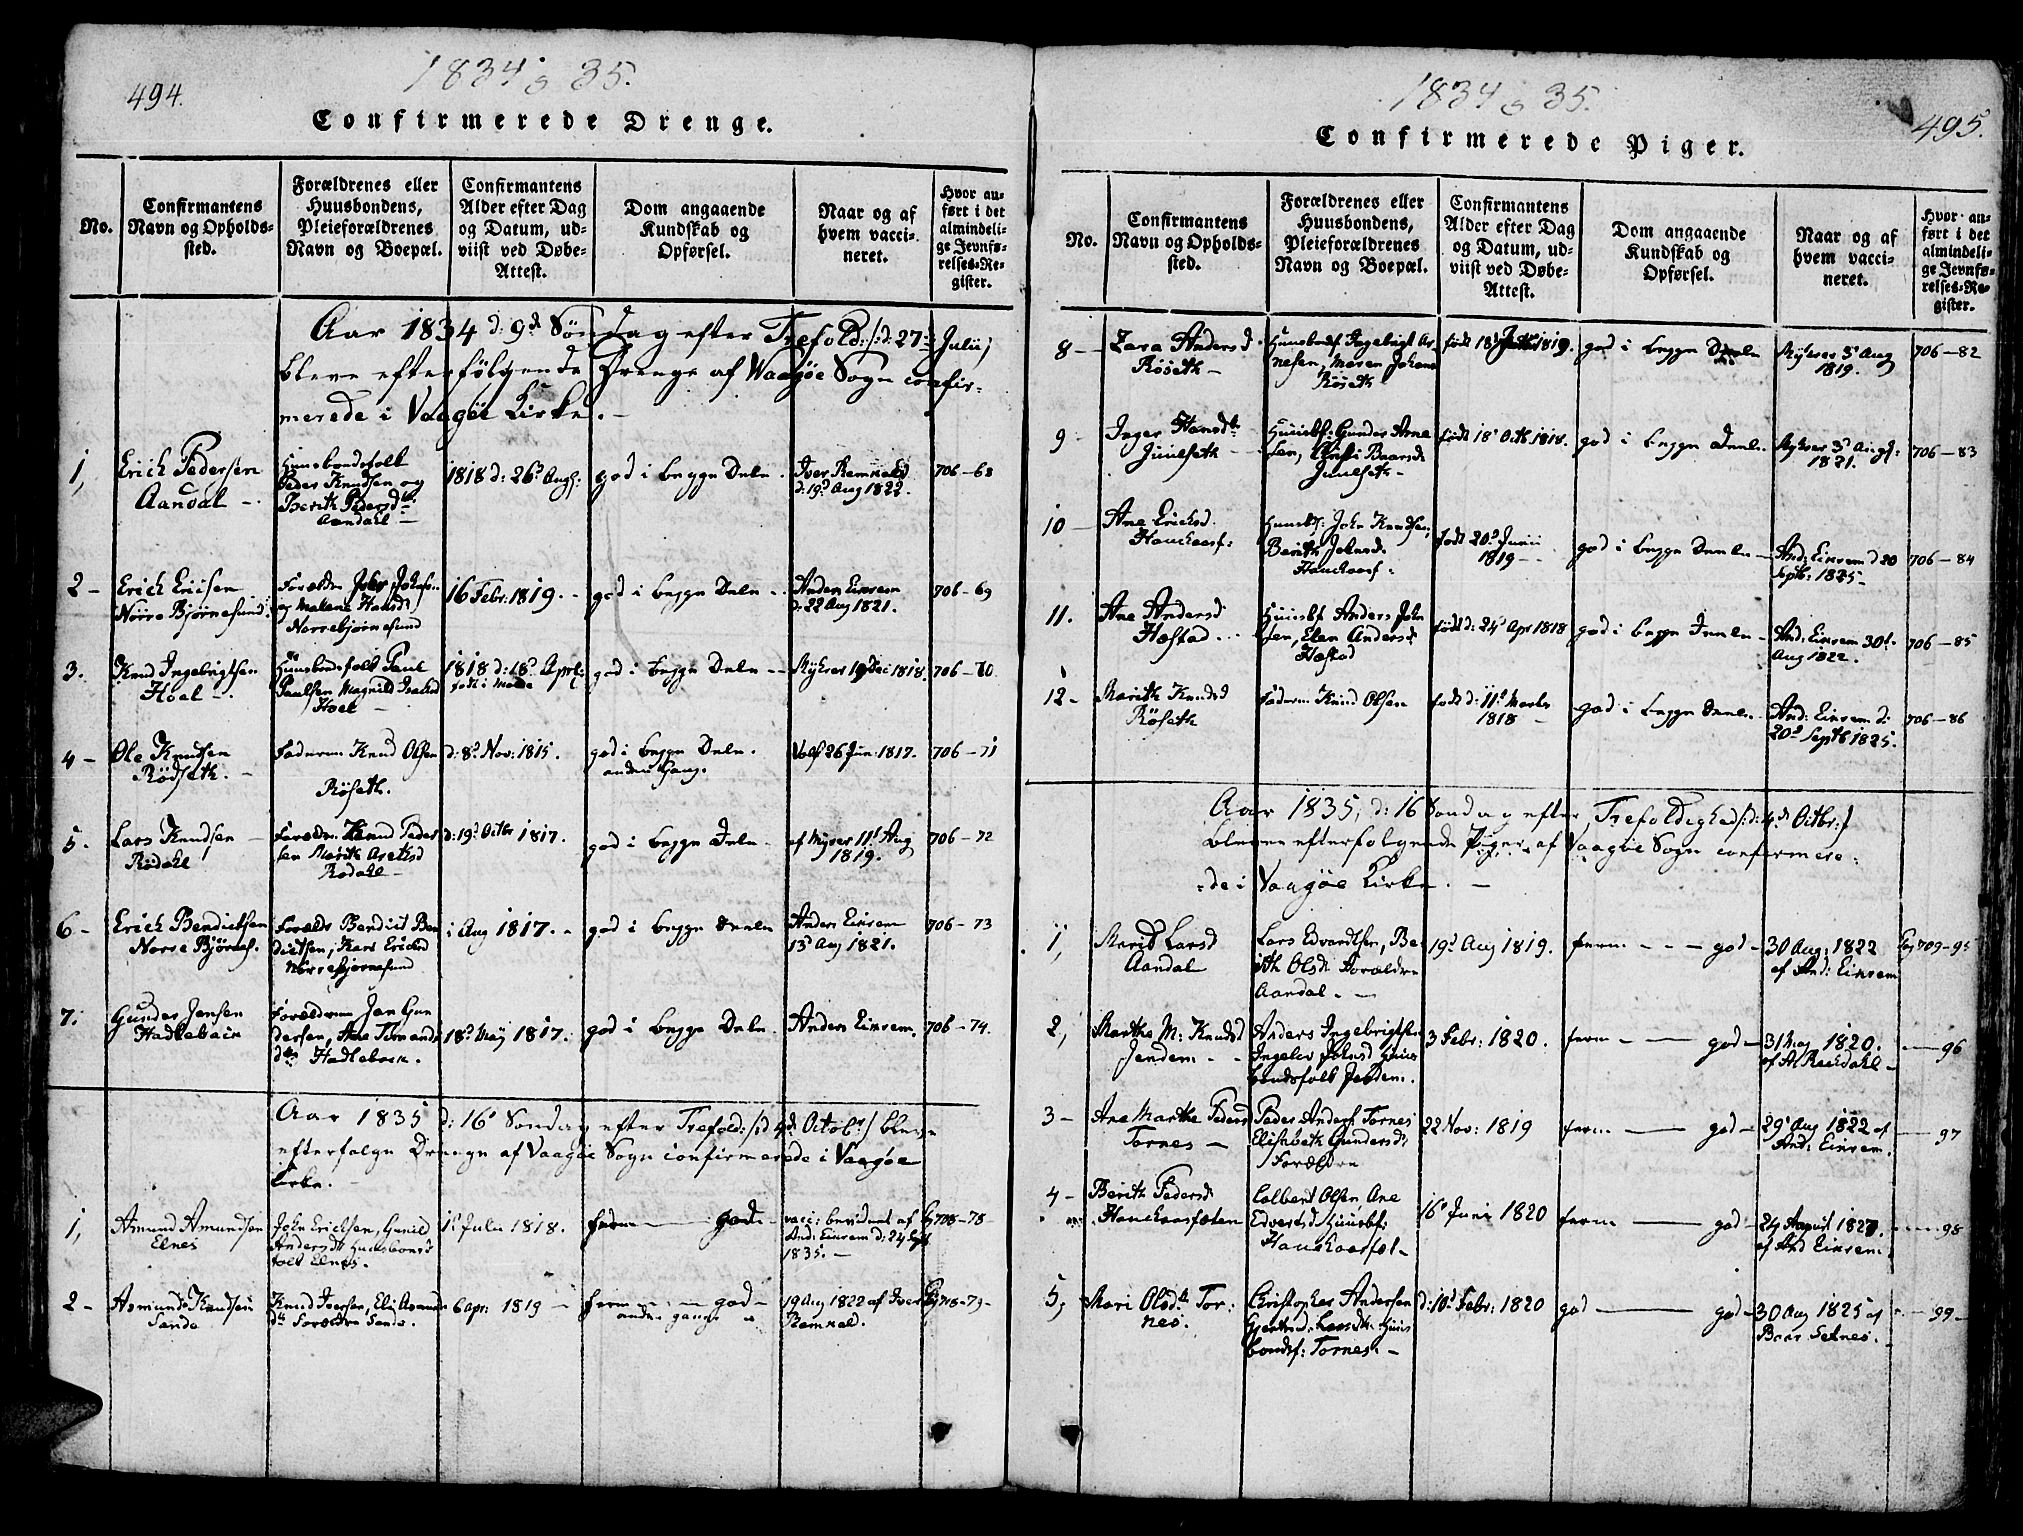 494.
1834 & 35.
Confirmerede Drenge.
No.
Confirmantens
Navn og Opholds-
sted.
Forældrenes eller
Huusbondens,
Pleieforældrenes
Navn og Boepæl.
Confirmantens
Alder efter Dag
og Datum, ud-
viist ved Døbe-
Attest.
Dom angaaende
Kundskab og
Opførsel.
Naar og af
hvem vacci-
neret.
Hvor an-
ført i det
almindeli-
ge Jevnfø-
relses-Re-
gister.
Aar 1834 d: 9d Søndag efter Trefold: /: d: 27de Julii,
bleve efterfølgende Drenge af Waagøe Sogn confir-
merede i Vaagøe Kirke. -
1, Erich Pedersen
Aandal -
Huusbondsfolk
Peder Knudsen og
Berith Pedersdtr
Aandahl -
1818 d: 26d Aug:
god i begge Dele.
Iver Remneld
d: 19d Aug 1822.
706-68
2 - Erich Erisen
Norre Bjørnesund.
Forældre John Johnsen
og Malena Hansd
Norrebjørnesund
16 Febr: 1819. -
god i begge Dele -
Anders Einrem
d: 22 Aug 1821.
706-69
3. Knud Ingebrigtsen
Hoel -
Huusbondsfolk Paul
Paulsen Magnild Isaksd
Hoel -
1818 d: 18d Aprl:
født i Molde
god i begge Dele -
Myhrer 19 Dec 1818.
706-70.
4 - Ole Knudsen
Rödseth. -
Faderen Knud Olsen
Röseth.
d: 8d Nov: 1815.
god i begge Dele.
anden Gang.
Wolf 26 Jun: 1817.
706-71
5. Lars Knudsen
Rødahl
Forældre Knud Peder
sen Marith Arethsd
Rodahl -
d: 19d Octbr 1817.
god i begge Dele -
af Myhrer 11t Aug
1819.
706-72
6 - Erich Bendictsen
Norre Bjørnes.
Forældre Bendict Ben
dictsen, Kari Ericksd
Norrebjørnesund
i Aug 1817. -
god i begge Deele
Anders Einrem
13d Aug 1821.
706-73
7. Gunder Jensen
Hadlebain
Forældrene Jen Gun
dersen, Ane Tormands
dtr Hadlebain.
18d Maÿ 1817.
god i begge Dele.
Anders Einrem.
706-74.
Aar 1835 d: 16d Søndag efter Trefold: /: d 4d Octobr / bleve
efterfølgn Drenge af Vaagøe Sogn confirmerede i Vaagøe
Kirke. -
1, Amund Amundsen
Elnes
John Ericksen, Gunild
Andersdtr Huusbonds
folk Elnes.
1t Julii 1818.
ferm - god -
vacc: bevidnet af
And: Einrem d: 24 Sept
1835. -
Pg 708-78
2 - Asmund Knudsen
Sande
Knud Iversen, Eli Asmunds
dtr Forældre Sande.
6 apr: 1819 -
ferm - - god -
anden gang
19 Aug 1822 af Iver
Remneld.
Pg 708-79 -
1834 & 35.
495.
Confirmerede Piger.
No.
Confirmantens
Navn og Opholds-
sted.
Forældrenes eller
Huusbondens,
Pleieforældrenes
Navn og Boepæl.
Confirmantens
Alder efter Dag
og Datum, ud-
viist ved Døbe-
Attest.
Dom angaaende
Kundskab og
Opførsel.
Naar og af
hvem vacci-
neret.
Hvor an-
ført i det
almindeli-
ge Jevnfø-
relses-Re-
gister.
8 - Zara Andersd
Röseth -
Huusbondf Ingebrigt Ar-
nesen, Maren Johans
Röseth
født 18d 1819.
god i begge Deele
Myhrer 3d Aug
1819.
706-82
9 - Inger Hansdtr
Juulseth -
Huusbf: Gunder Arne
sen, Baarsd
Juulseth -
født 18d Octb. 1818.
god i begge Deele
Myhrer 3d Aug:
1821.
706-83
10 - Ane Erichsd.
Hauckaasf:
Huusbf: John Knudsen,
Berith Johnsd.
Hauckaasf -
født 20d Junii
1819 -
god i begge Deele -
And: Einrem d 20
Septb: 1825 -
706-84
11. Ane Andersd
Hæstad -
Huusbf Anders John
sen, Elen Andersd:
Hæstad
født d: 24d Apr 1818
god i begge Deele -
And: Einrem 30d
Aug 1822.
706-85
12 - Marith Knudsd
Röseth
Faderen Knud Olsen
født d: 11d Marts
1818 -
god i begge Deele -
And: Einrem d:
20d Septb 1825.
706-86
Aar 1835, d: 16 Søndag efter Trefoldighed /: d: 4de Octbr: /
bleve efterfølgende Piger af Vaagøe Sogn confirmere-
de i Vaagøe Kirke. -
1, Marit Larsd
Aandal
Lars Edvardsen, Be
rith Olsd: Forældre
Aandal. -
19d Aug 1819.
ferm - - - god -
30 Aug: 1822
af And: Einrem
Pag 709-95
2, Marthe M: Knudsd
Jendem - -
Anders Ingebrigtsen
Ingebor Johnsd Huus
bondsfolk Jendem.
3 Febr: 1820.
ferm - - god -
31 Maÿ 1820.
af A: Reckdahl -
- 96
3 - Ane Marthe Pedersd
Tornes -
Peder Anders: Tornes
Elisabeth Gundersd:
Forældre
22 Nov: 1819
ferm - god -
29d Aug 1822 af
And: Einrem.
- 97
4 - Berith Pedersd
Hauckaasfæten
Colbent Olsen, Ane
Edvertsd Huusbf:
Hauckaasfæt -
16d Juni 1820
ferm - god -
24 August 1827.
af And Einrem.
- 98
5, Mari Olsdtr Tor:
nes.
Christopher Andersen
Gjertrud Larsdtr: Huus
bondsf: Tornes. -
d: 10d Febr: 1820
god - god -
30 Aug 1825 af
Baar Setnes.
- 99 -